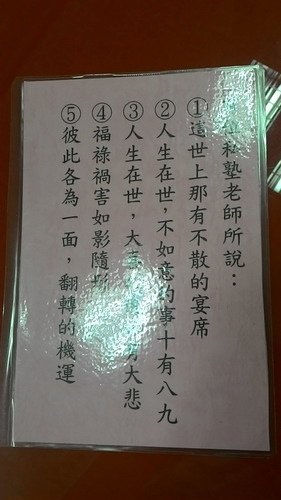 私塾老師所說：
①這世上那有不散的宴席
②人生在世，不如意的事十有八九
③人生在世，大喜有大悲
④福祿禍害如影隨形
⑤彼此各為一面，翻轉的機運